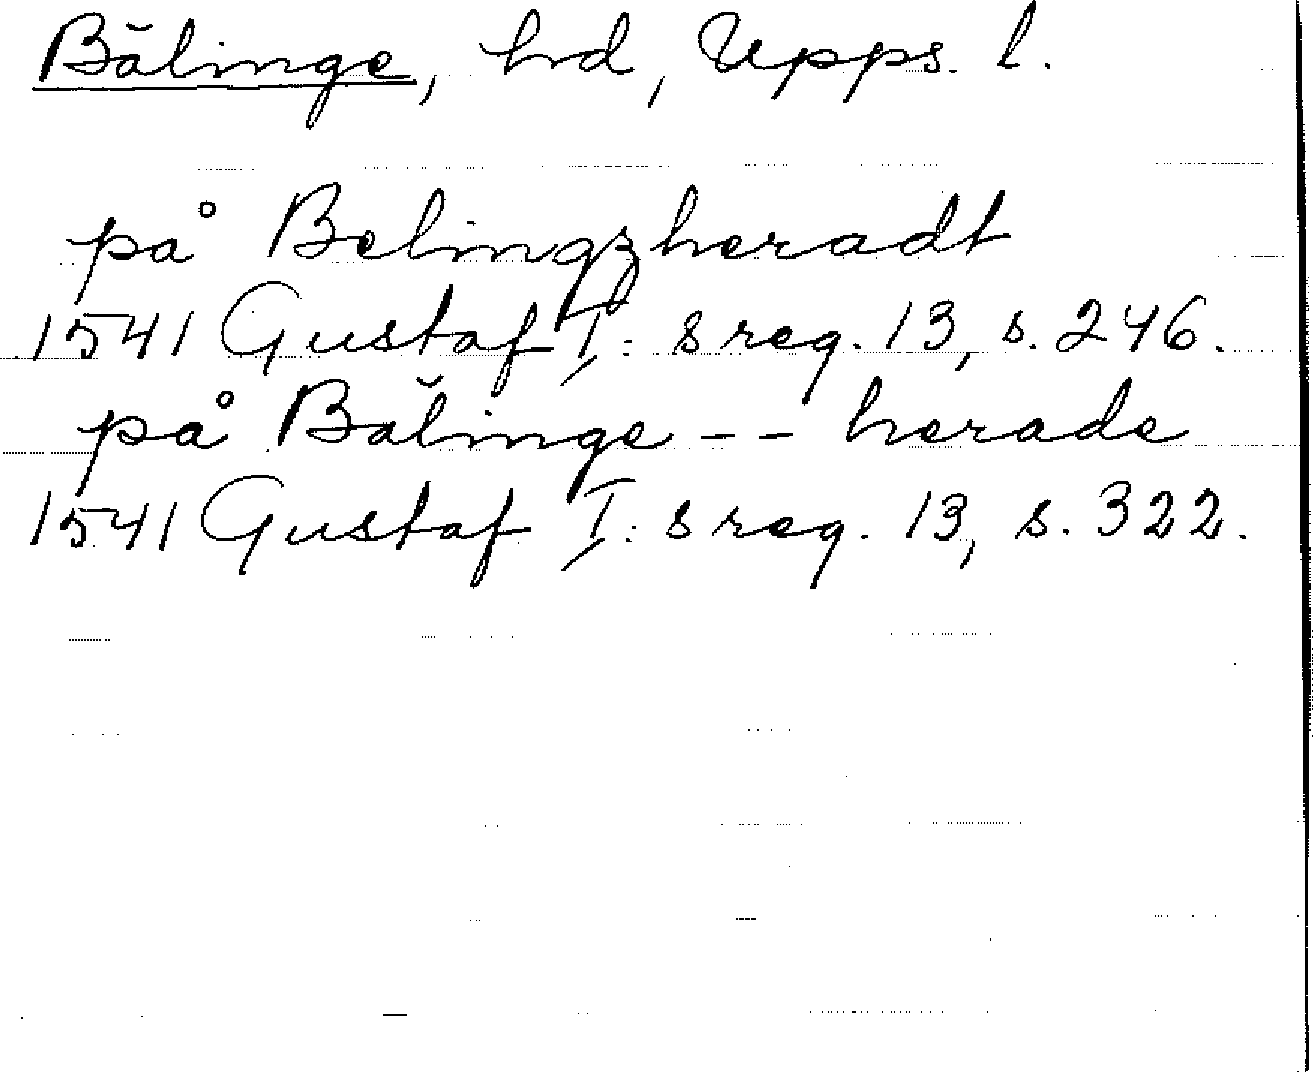 Bälinge, hd, Upps. l.
på Belingzheradt
1541 Gustaf I: s reg. 13, s. 246.
på Bälinge -- herade
1541 Gustaf I: s reg. 13, s. 322.